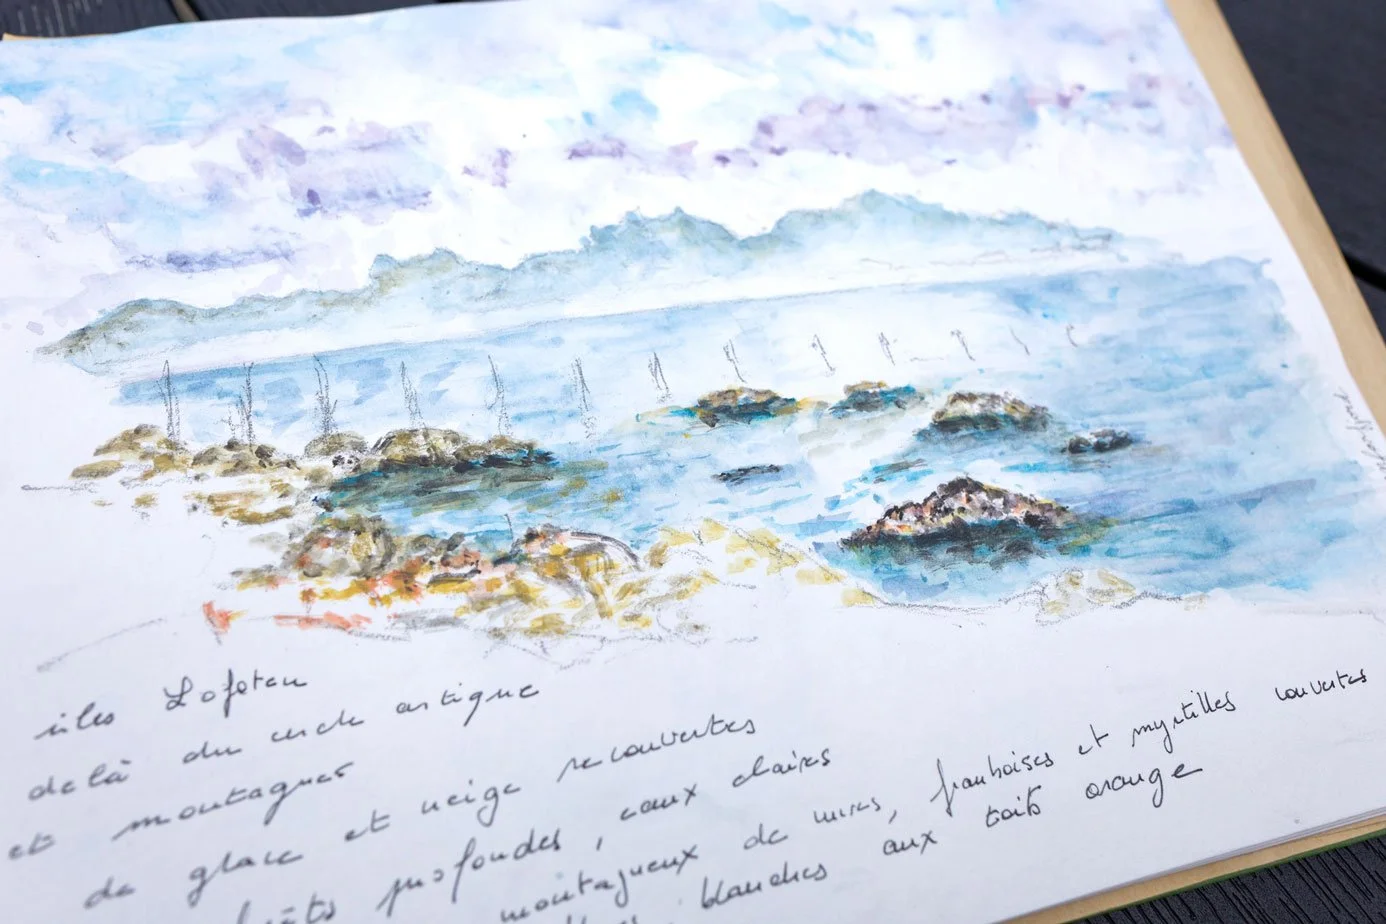 îles Lofoten
delà du cercle artique
et montagnes
de glace et neige recouvertes
profondes, eaux claires
montagneux de mures, framboises et myrtilles couvertes
blanches aux toits orange